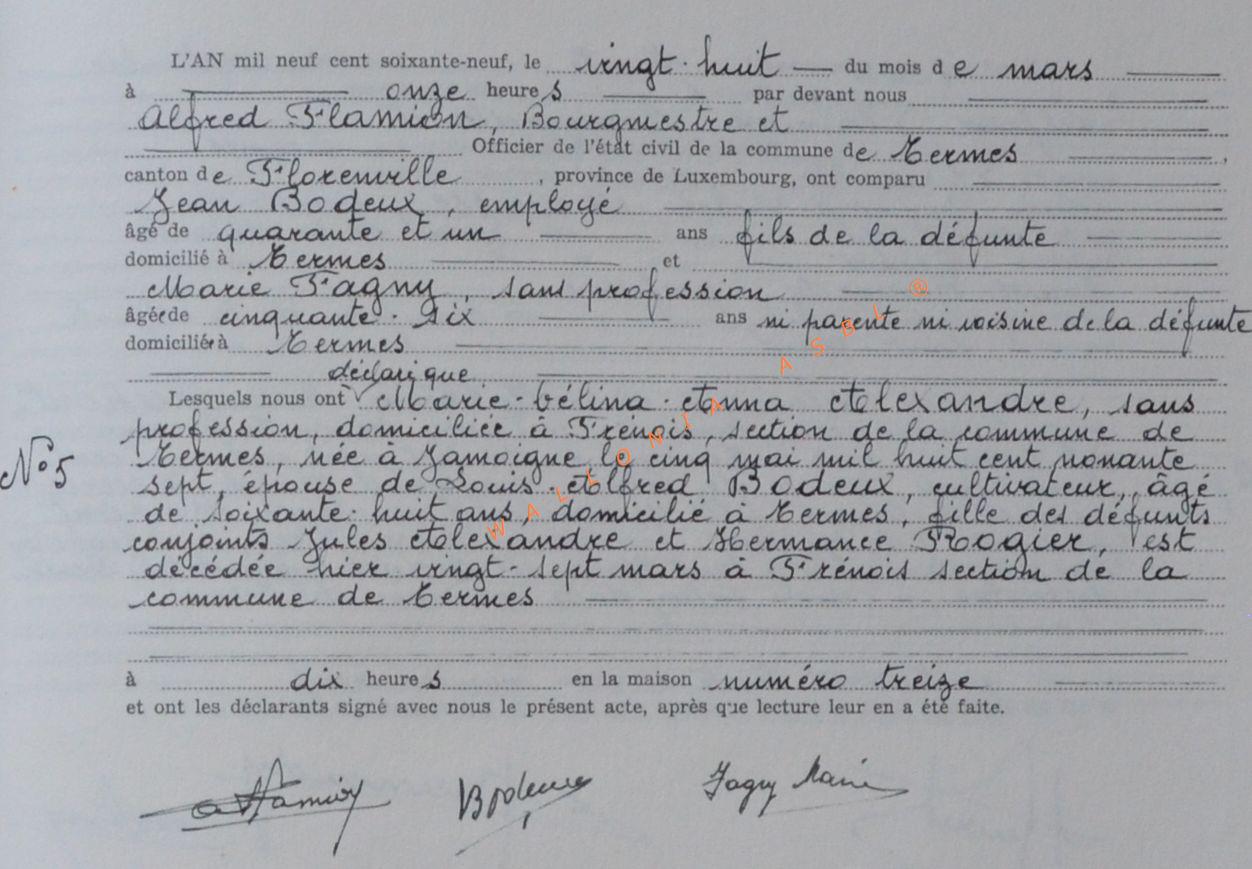 L'AN mil neuf cent soixante-neuf, le vingt-huit — du mois de mars
à onze heures par devant nous
Alfred Flamion, Bourgmestre et
Officier de l'état civil de la commune de Termes,
canton de Florenville, province de Luxembourg, ont comparu
Jean Bodeux, employé
âgé de quarante et un ans fils de la défunte
domicilié à Termes et
Marie Fagny, sans profession
âgée de cinquante-six ans ni parente ni voisine de la défunte
domiciliée à Termes
déclaré que
Lesquels nous ont Marie-Célina-Anna Alexandre, sans
profession, domiciliée à Frenois, section de la commune de
N° 5 Termes, née à Jamoigne le cinq mai mil huit cent nonante
sept, épouse de Louis-Alfred Bodeux, cultivateur, âgé
de soixante-huit ans, domicilié à Termes, fille des défunts
conjoints Jules Alexandre et Hermance Rogier, est
décédée hier vingt-sept mars à Frénois section de la
commune de Termes
à dix heures en la maison numéro treize
et ont les déclarants signé avec nous le présent acte, après que lecture leur en a été faite.
Bodeux Fagny Marie
WALLONIA ASBL ®